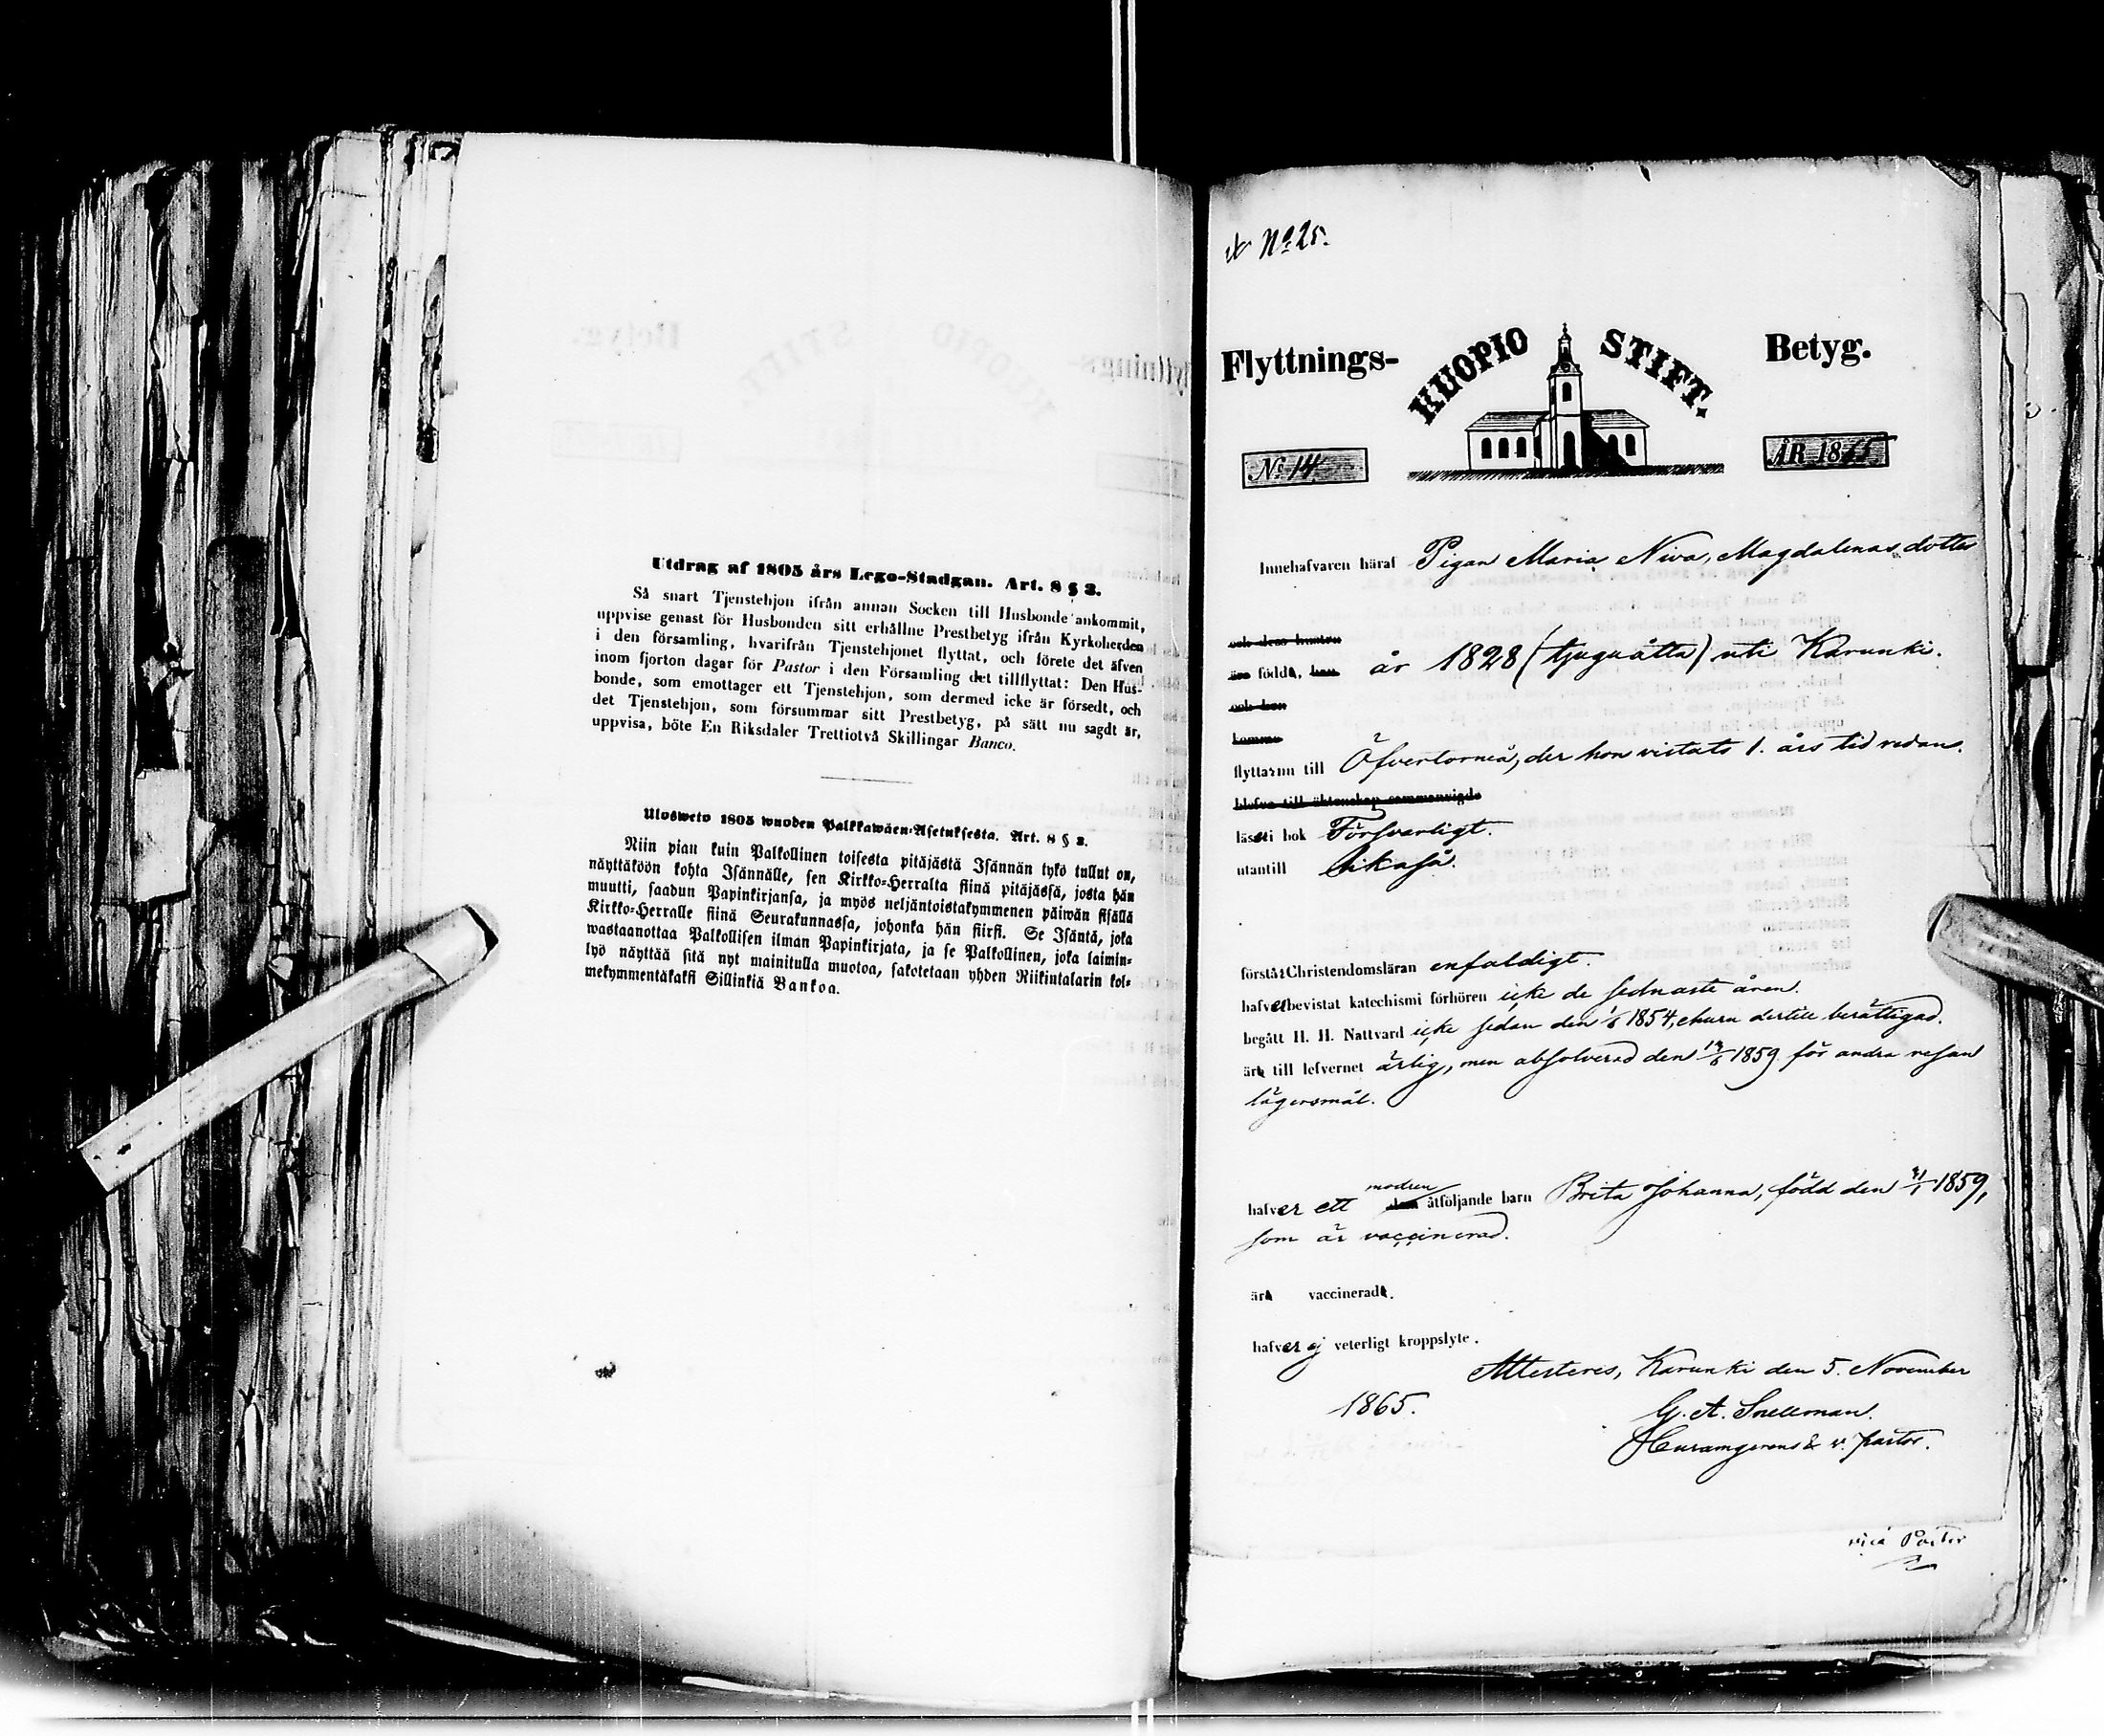 Utdrag af 1805 års Lego-Stadgan. Art. 8 § 3.
Så snart Tjenstehjon ifrån annan Socken till Husbonde ankommit,
uppvise genast för Husbonden sitt erhållne Prestbetyg ifrån Kyrkoherden
i den församling, hvarifrån Tjenstehjonet flyttat, och förete det äfven
inom fjorton dagar för Pastor i den Församling det tillflyttat: Den Hus-
bonde, som emottager ett Tjenstehjon, som dermed icke är försedt, och
det Tjenstehjon, som försummar sitt Prestbetyg, på sätt nu sagdt är,
uppvisa, böte En Riksdaler Trettiotvå Skillingar Banco.
Ulosweto 1805 wuoden Palkkawäen-Asetuksesta. Art. 8 § 3.
Niin pian kuin Palkollinen toisesta pitäjästä Isännän tykö tullut on,
näyttäköön kohta Isännälle, sen Kirkko-Herralta siinä pitäjässä, josta hän
muutti, saadun Papinkirjansa, ja myös neljäntoistakymmenen päiwän sisällä
Kirkko-Herralle siinä Seurakunnassa, johonka hän siirsi. Se Isäntä, joka
wastaanottaa Palkollisen ilman Papinkirjata, ja se Palkollinen, joka laimin-
lyö näyttää sitä nyt mainitulla muotoa, sakotetaan yhden Riikintalarin kol-
mekymmentäkaksi Sillinkiä Bankoa.
No 25.
Flyttnings- KUOPIO STIFT. Betyg.
No 14 ÅR 1865
Innehafvaren häraf Pigan Maria Niva, Magdalenas dotter
och dess hustru
äro född, han år 1828 (tjuguåtta) uti Karunki.
och hon
komma
flytta nu till Öfvertorneå, der hon vistats 1. års tid redan.
blefvo till äktenskap sammanvigde
läser i bok Försvarligt.
utantill Likaså.
förstår Christendomsläran enfaldigt.
hafver bevistat katechismi förhören icke de sednaste åren.
begått H. H. Nattvard icke sedan den 1/6 1854, ehuru dertill berättigad.
är till lefvernet ärlig, men absolverad den 19/6 1859 för andra resan
lägersmål.
hafver ett modren åtföljande barn Brita Johanna, född den 31/1 1859,
som är vaccinerad.
är vaccinerad.
hafver ej veterligt kroppslyte.
Attesteras, Karunki den 5. November
1865.
G. A. Snellman.
v. pastor.
vice Pastor